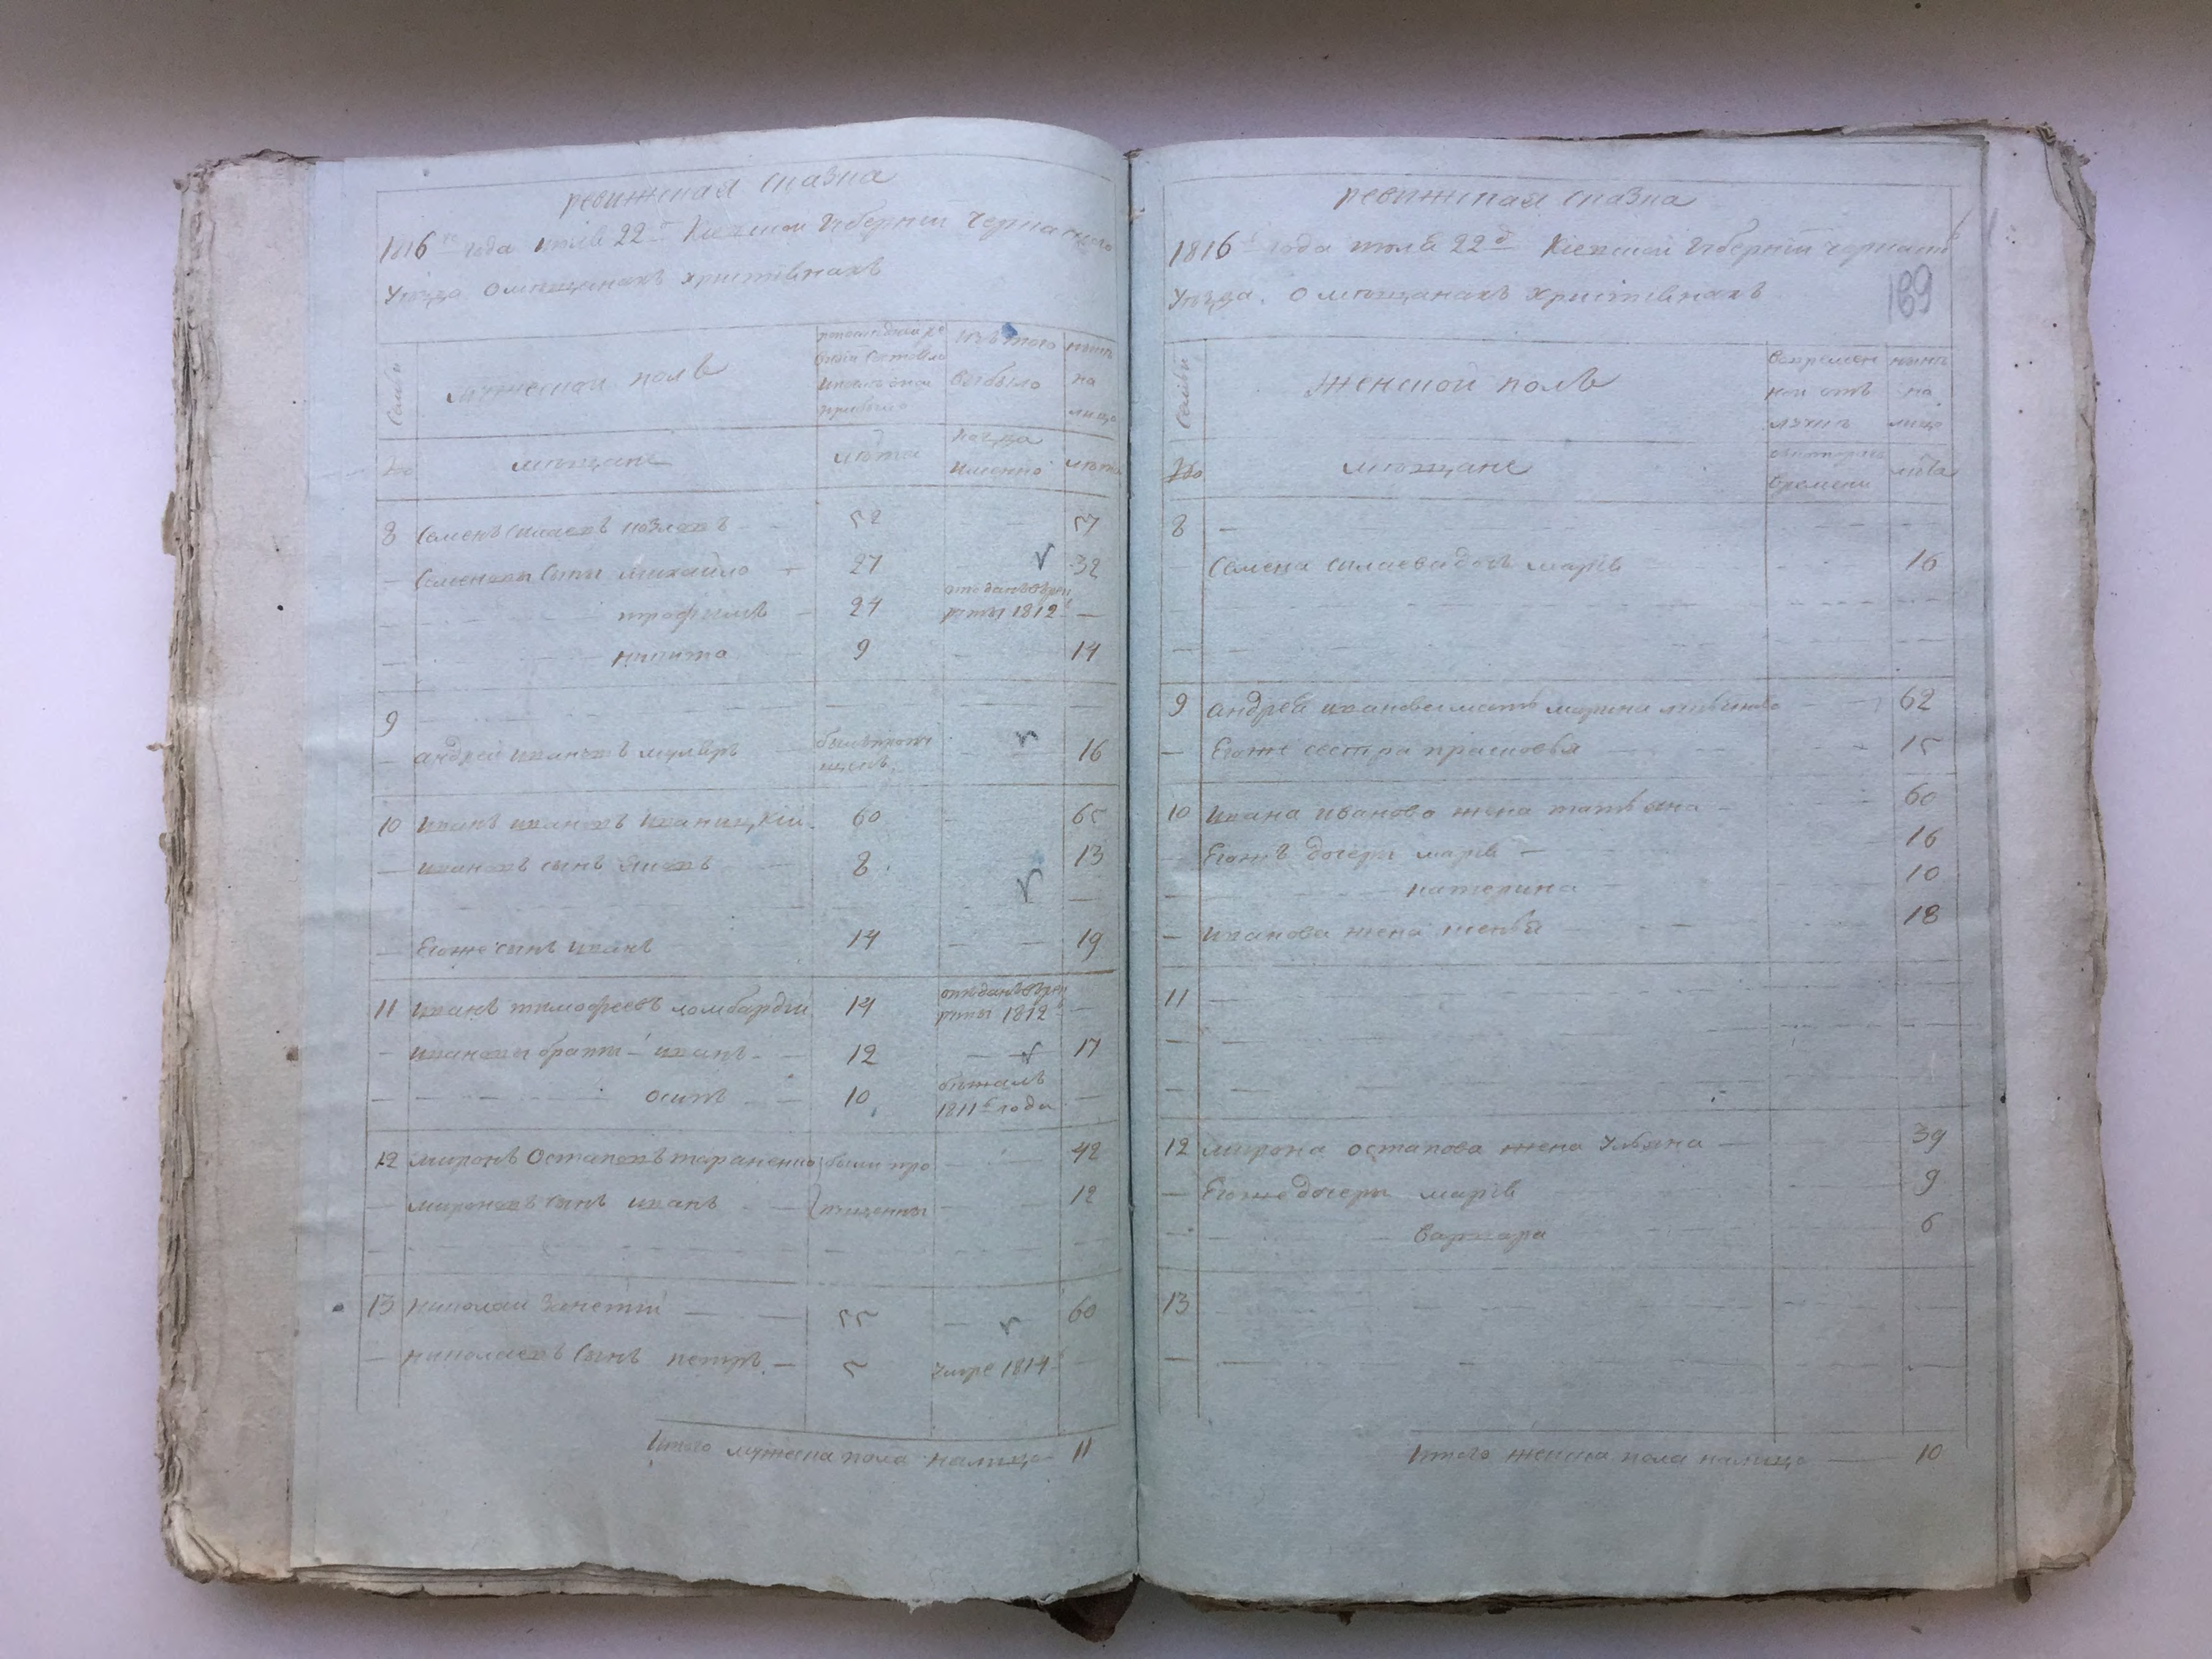 ревижская сказка
1816го года июля 22го Киевской губернии Черкаского
Уѣзда о мѣщанахъ християнахъ
Семьи
Мужеской полъ
Изъ того
выбыло
нынѣ
на
лицо
№
мѣщане
лѣта
когда
именно
лѣта
8 Семенъ Силаевъ Козловъ 52 57
Семеновы сыны Михайло 27 32
Трофимъ 24 отданъ въ рек
руты 1812
Никита 9 14
9
Андрей Ивановъ Муляръ былъ пропу
щенъ 16
10 Иванъ Ивановъ Иваницкій 60 65
Ивановъ сынъ Яковъ 8 13
Егоже сынъ Иванъ 14 19
11 Иванъ Тимофеевъ Ломбардій 14 отданъ въ рек
руты 1812
Ивановы браты Иванъ 12 17
Осипъ 10 бѣжалъ
1811го года
12 Миронъ Остаповъ Тараненко были про 42
Мироновъ сынъ Иванъ пущенны 12
13 Николай 55 60
Николаевъ сынъ Петръ 5 умре 1814
Итого мужеска пола налицо 11
ревижская сказка
1816го года июля 22го Киевской губернии Черкаско
Уѣзда о мѣщанахъ християнахъ
169
Семьи
Женской полъ
Во времен
ной отъ
лучкѣ
нынѣ
на
лицо
№
мѣщане
съ котораго
времени
лѣта
8
Семена Силаева дочь Марія 16
9 Андрея Иванова мать Марина 62
Егоже сестра Прасковья 15
10 Ивана Иванова жена Татьяна 60
Егожъ дочери Марія 16
Катерина 10
Иванова жена 18
11
12 Мирона Остапова жена Ульяна 39
Егоже дочери Марія 9
Варвара 6
13
Итого женска пола налицо 10